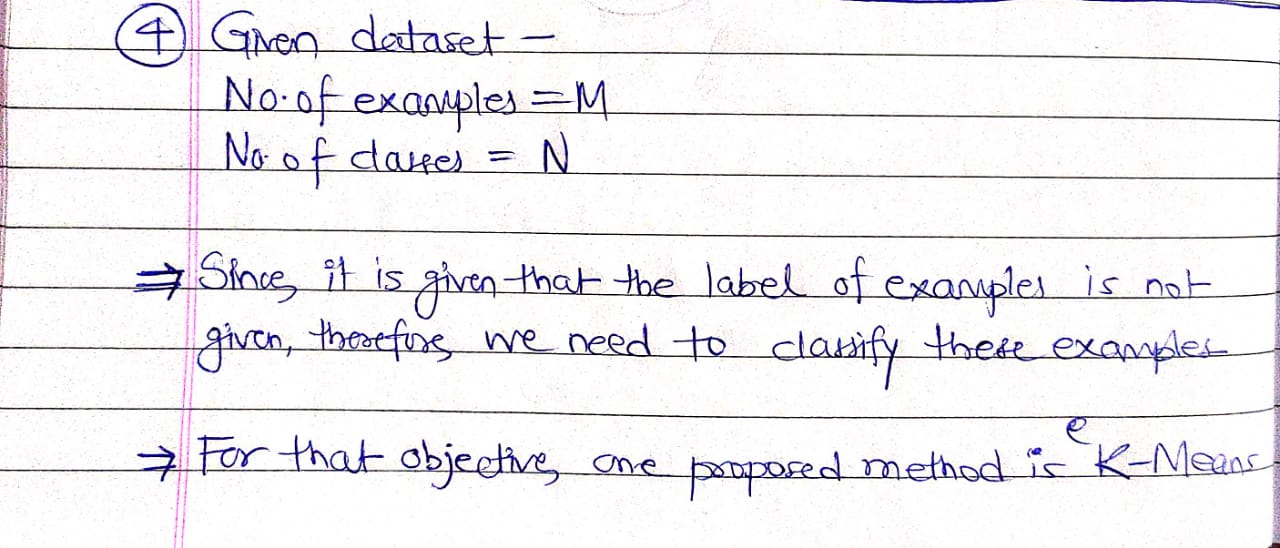 ④ Given dataset -
No. of examples = M
No. of classes = N
⇒ Since, it is given that the label of examples is not
given, therefore, we need to classify these examples
→ For that objective, one proposed method is K-Means
e